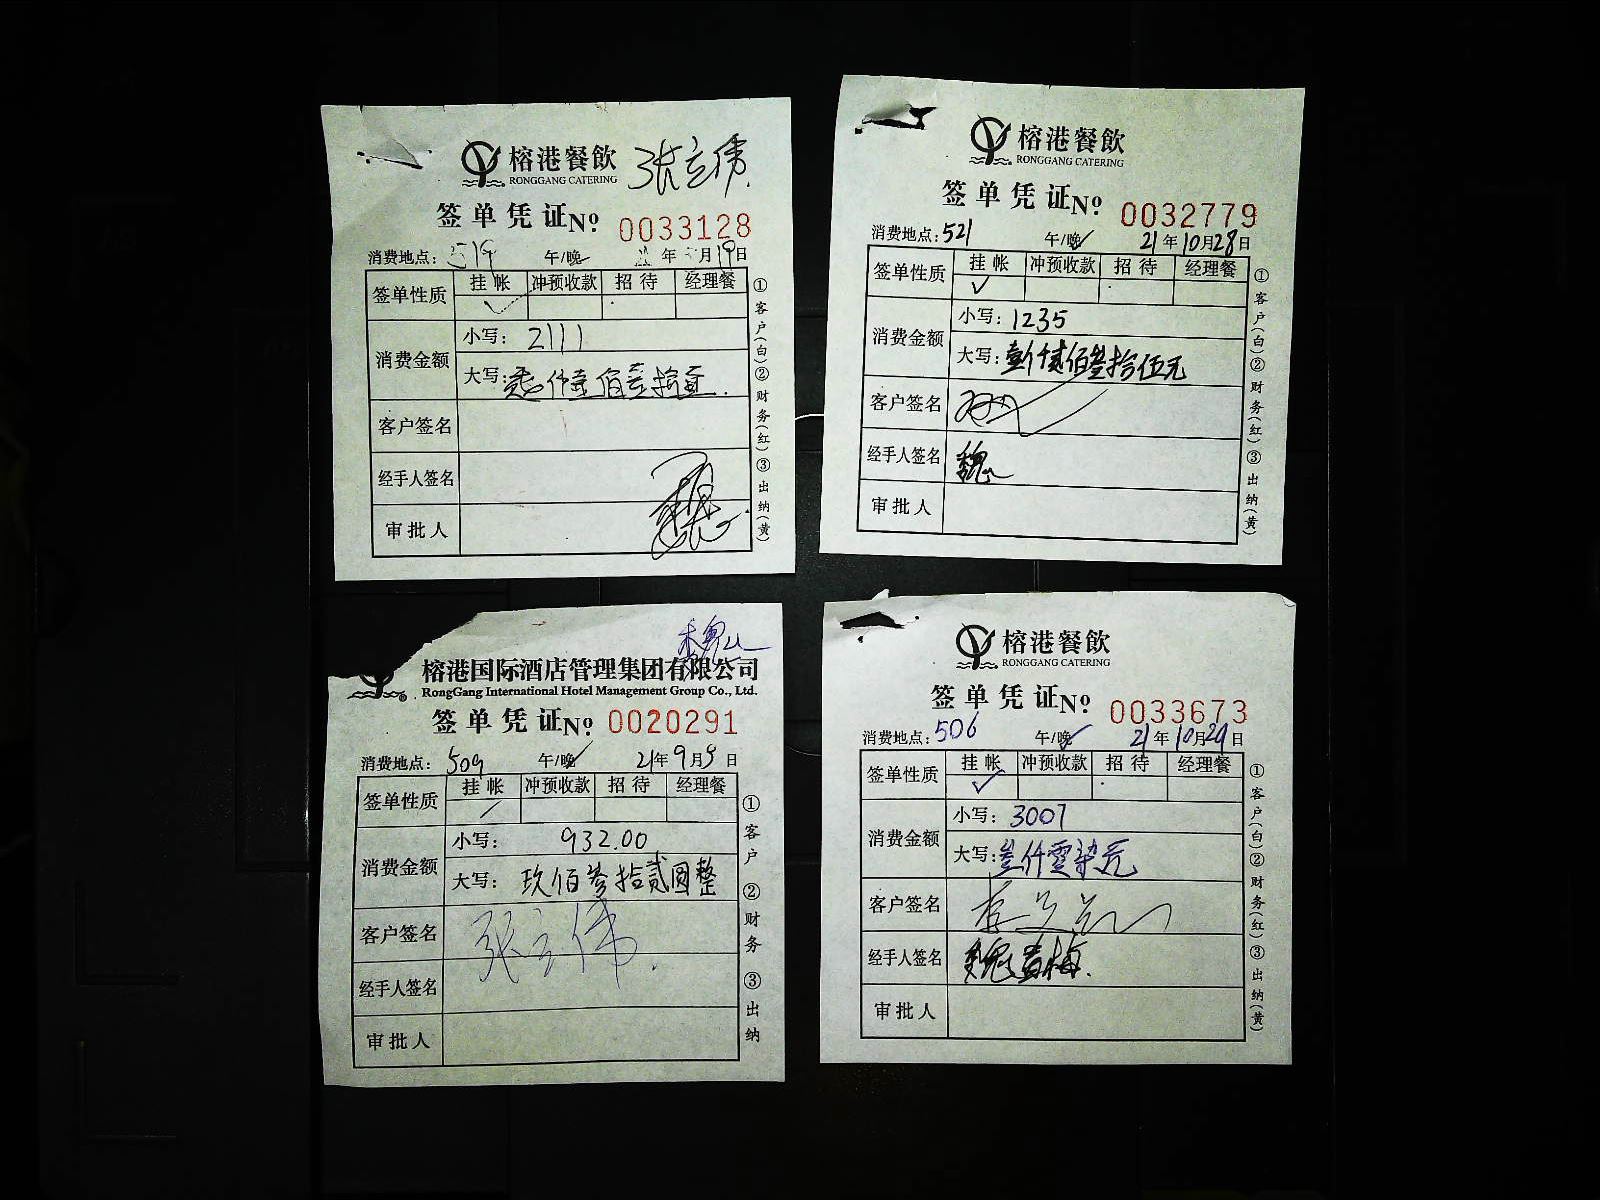 榕港餐飲 张立伟
RONGGANG CATERING
签单凭证 № 0033128
消费地点: 519 午/晚 年 月19日
签单性质 挂帐 冲预收款 招待 经理餐
消费金额
小写: 2111
大写: 贰仟壹佰壹拾壹
客户签名
经手人签名
审批人
①客户(白)②财务(红)③出纳(黄)
榕港餐飲
RONGGANG CATERING
签单凭证 № 0032779
消费地点: 521 午/晚 21年10月28日
签单性质 挂帐 冲预收款 招待 经理餐
消费金额
小写: 1235
大写: 壹仟贰佰叁拾伍元
客户签名
经手人签名 魏
审批人
①客户(白)②财务(红)③出纳(黄)
魏
榕港国际酒店管理集团有限公司
RongGang International Hotel Management Group Co., Ltd.
签单凭证 № 0020291
消费地点: 509 午/晚 21年9月9日
签单性质 挂帐 冲预收款 招待 经理餐
消费金额
小写: 932.00
大写: 玖佰叁拾贰圆整
客户签名 张立伟
经手人签名
审批人
①客户 ②财务 ③出纳
榕港餐飲
RONGGANG CATERING
签单凭证 № 0033673
消费地点: 506 午/晚 21年10月29日
签单性质 挂帐 冲预收款 招待 经理餐
消费金额
小写: 3007
大写: 叁仟零柒元
客户签名
经手人签名 魏贵梅
审批人
①客户(白)②财务(红)③出纳(黄)